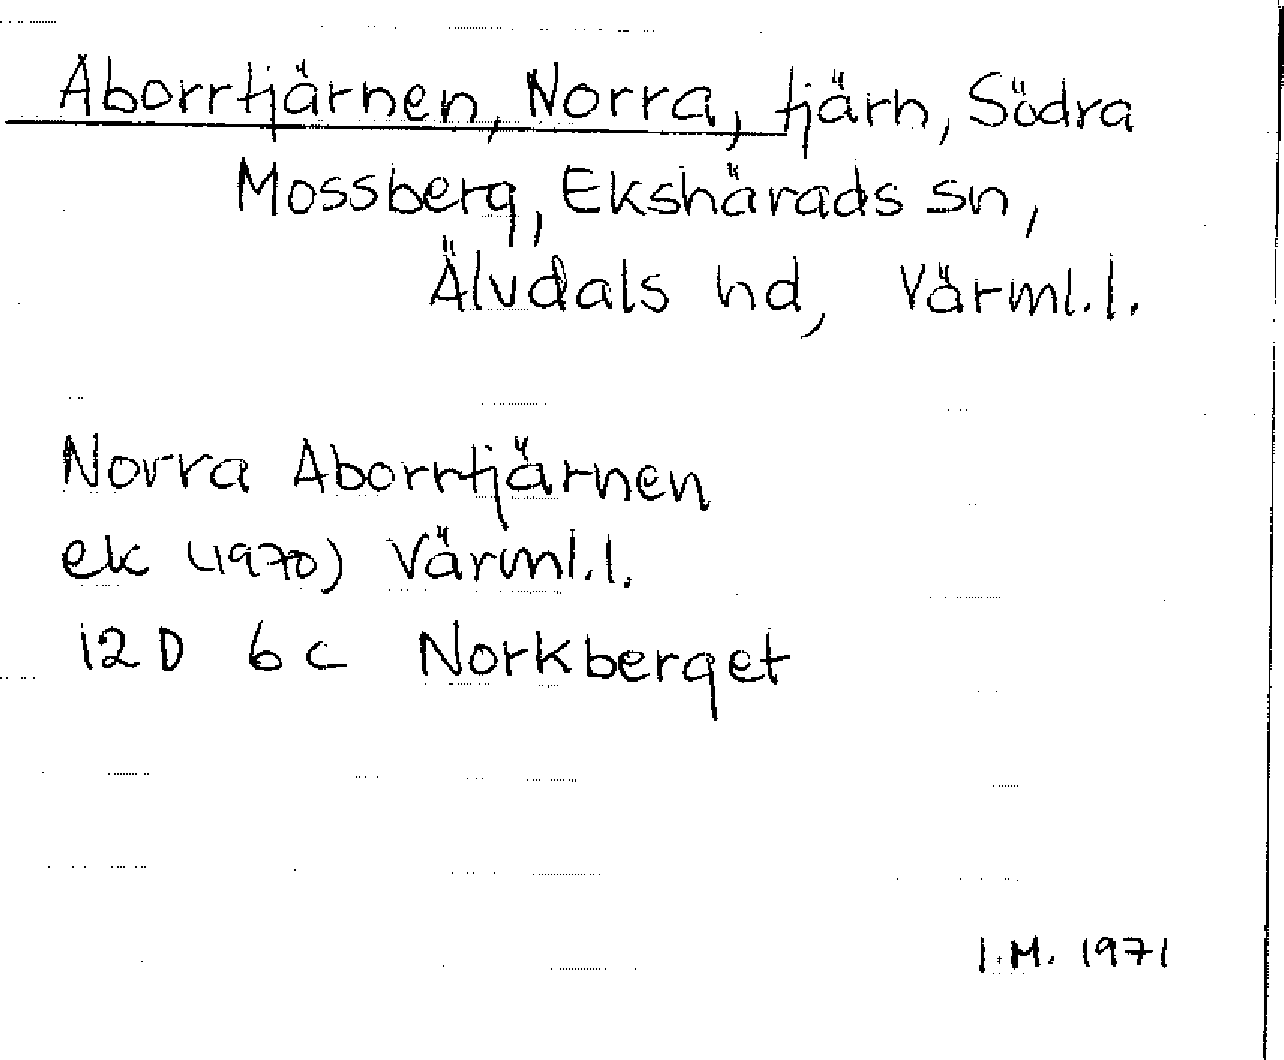 Aborrtjärnen, Norra, tjärn, Södra
Mossberg, Ekshärads sn,
Älvdals hd, Värml.l.
Norra Aborrtjärnen
ek (1970) Värml.l.
12D 6c Norkberget
I.M. 1971